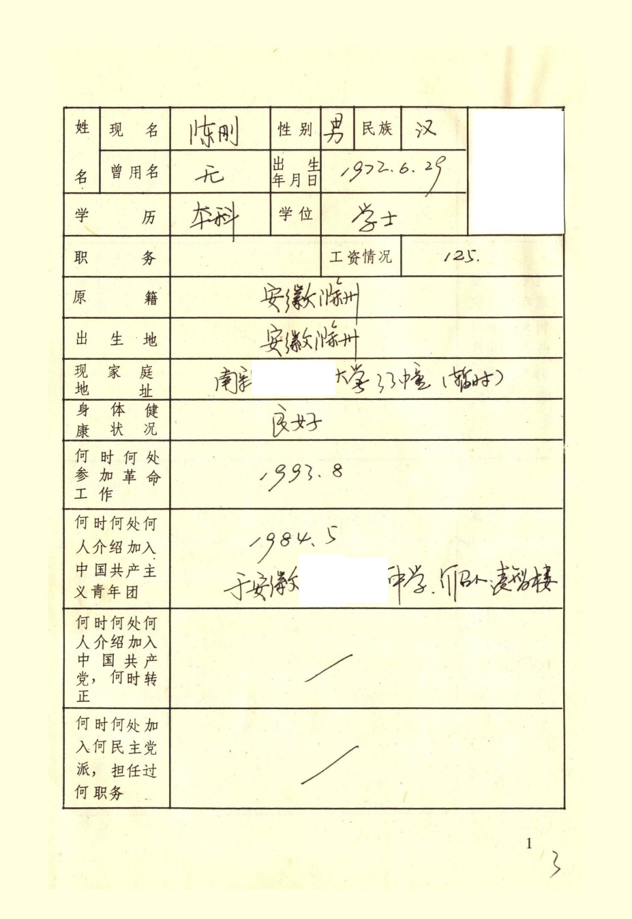 姓名 现名 陈刚 性别 男 民族 汉
曾用名 无 出生年月日 1972.6.29
学历 本科 学位 学士
职务 工资情况 125.
原籍 安徽滁州
出生地 安徽滁州
现家庭地址 南京 大学33幢(暂时)
身体健康状况 良好
何时何处
参加革命 1993.8
工作
何时何处何 1984.5
人介绍加入
中国共产主 于安徽 中学.介绍人:凌
义青年团
何时何处何
人介绍加入
中国共产
党,何时转
正
何时何处加
入何民主党
派,担任过
何职务
1
3